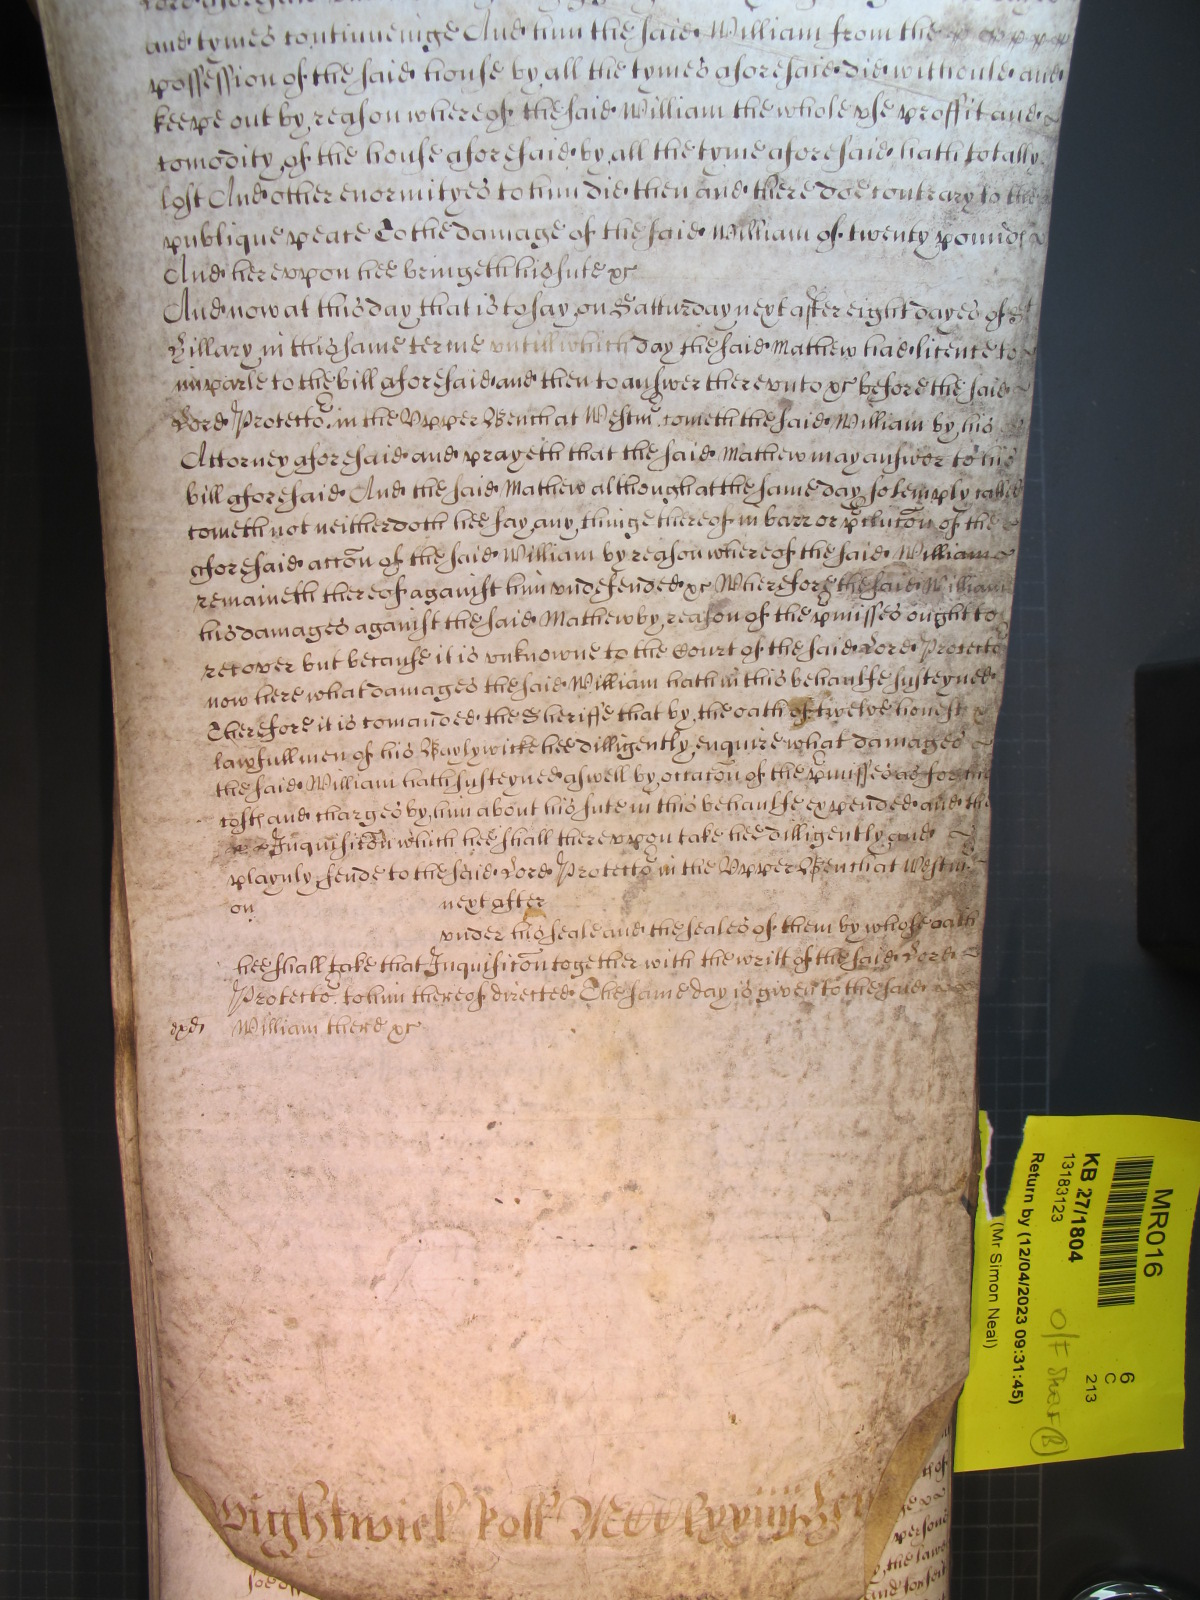 and tymes continueinge And him the said William from the
possession of the said house by all the tymes aforesaid did withould and
keepe out by reason whereof the said William the whole use proffit and
comodity of the house aforesaid by all the tyme aforesaid hath totally
lost And other enormityes to him did then and there doe contrary to the
publique peace To the damage of the said William of twenty pounds
And hereuppon hee bringeth his sute &c
And now at this day that is to say on Satturday next after eight dayes of St
Hillary in this same terme untill which day the said Mathew had licence to
imparle to the bill aforesaid and then to answer thereunto &c before the said
Lord Protector in the Upper Bench at Westm cometh the said William by his
Attorney aforesaid and prayeth that the said Mathew may answer to his
bill aforesaid And the said Mathew although at the same day solemply called
cometh not neither doth hee say any thinge thereof in barr or pclucon of the
aforesaid accon of the said William by reason whereof the said William
remaineth thereof against him undefended &c Wherefore the said William
his damages against the said Mathew by reason of the pmisses ought to
recover but because it is unknowne to the Court of the said Lord Protector
now here what damages the said William hath in this behaulfe susteyned
Therefore it is comanded the Sheriffe that by the oath of twelve honest
lawfull men of his Baylywicke hee dilligently enquire what damages
the said William hath susteyned aswell by occacon of the pmisses as for his
costs and charges by him about his sute in this behaulfe expended and the
Inquisicon which hee shall thereuppon take hee dilligently and
playnly sende to the said Lord Protector in the Upper Bench at Westm
on next after
under his seale and the seales of them by whose oath
hee shall take that Inquisicon together with the writt of the said Lord
Protector to him thereof directed The same day is given to the said
William there &c
Wightwick Roll
MR016
KB 27/1804
13183123
Return by (12/04/2023 09:31:45)
(Mr Simon Neal)
6
C
213